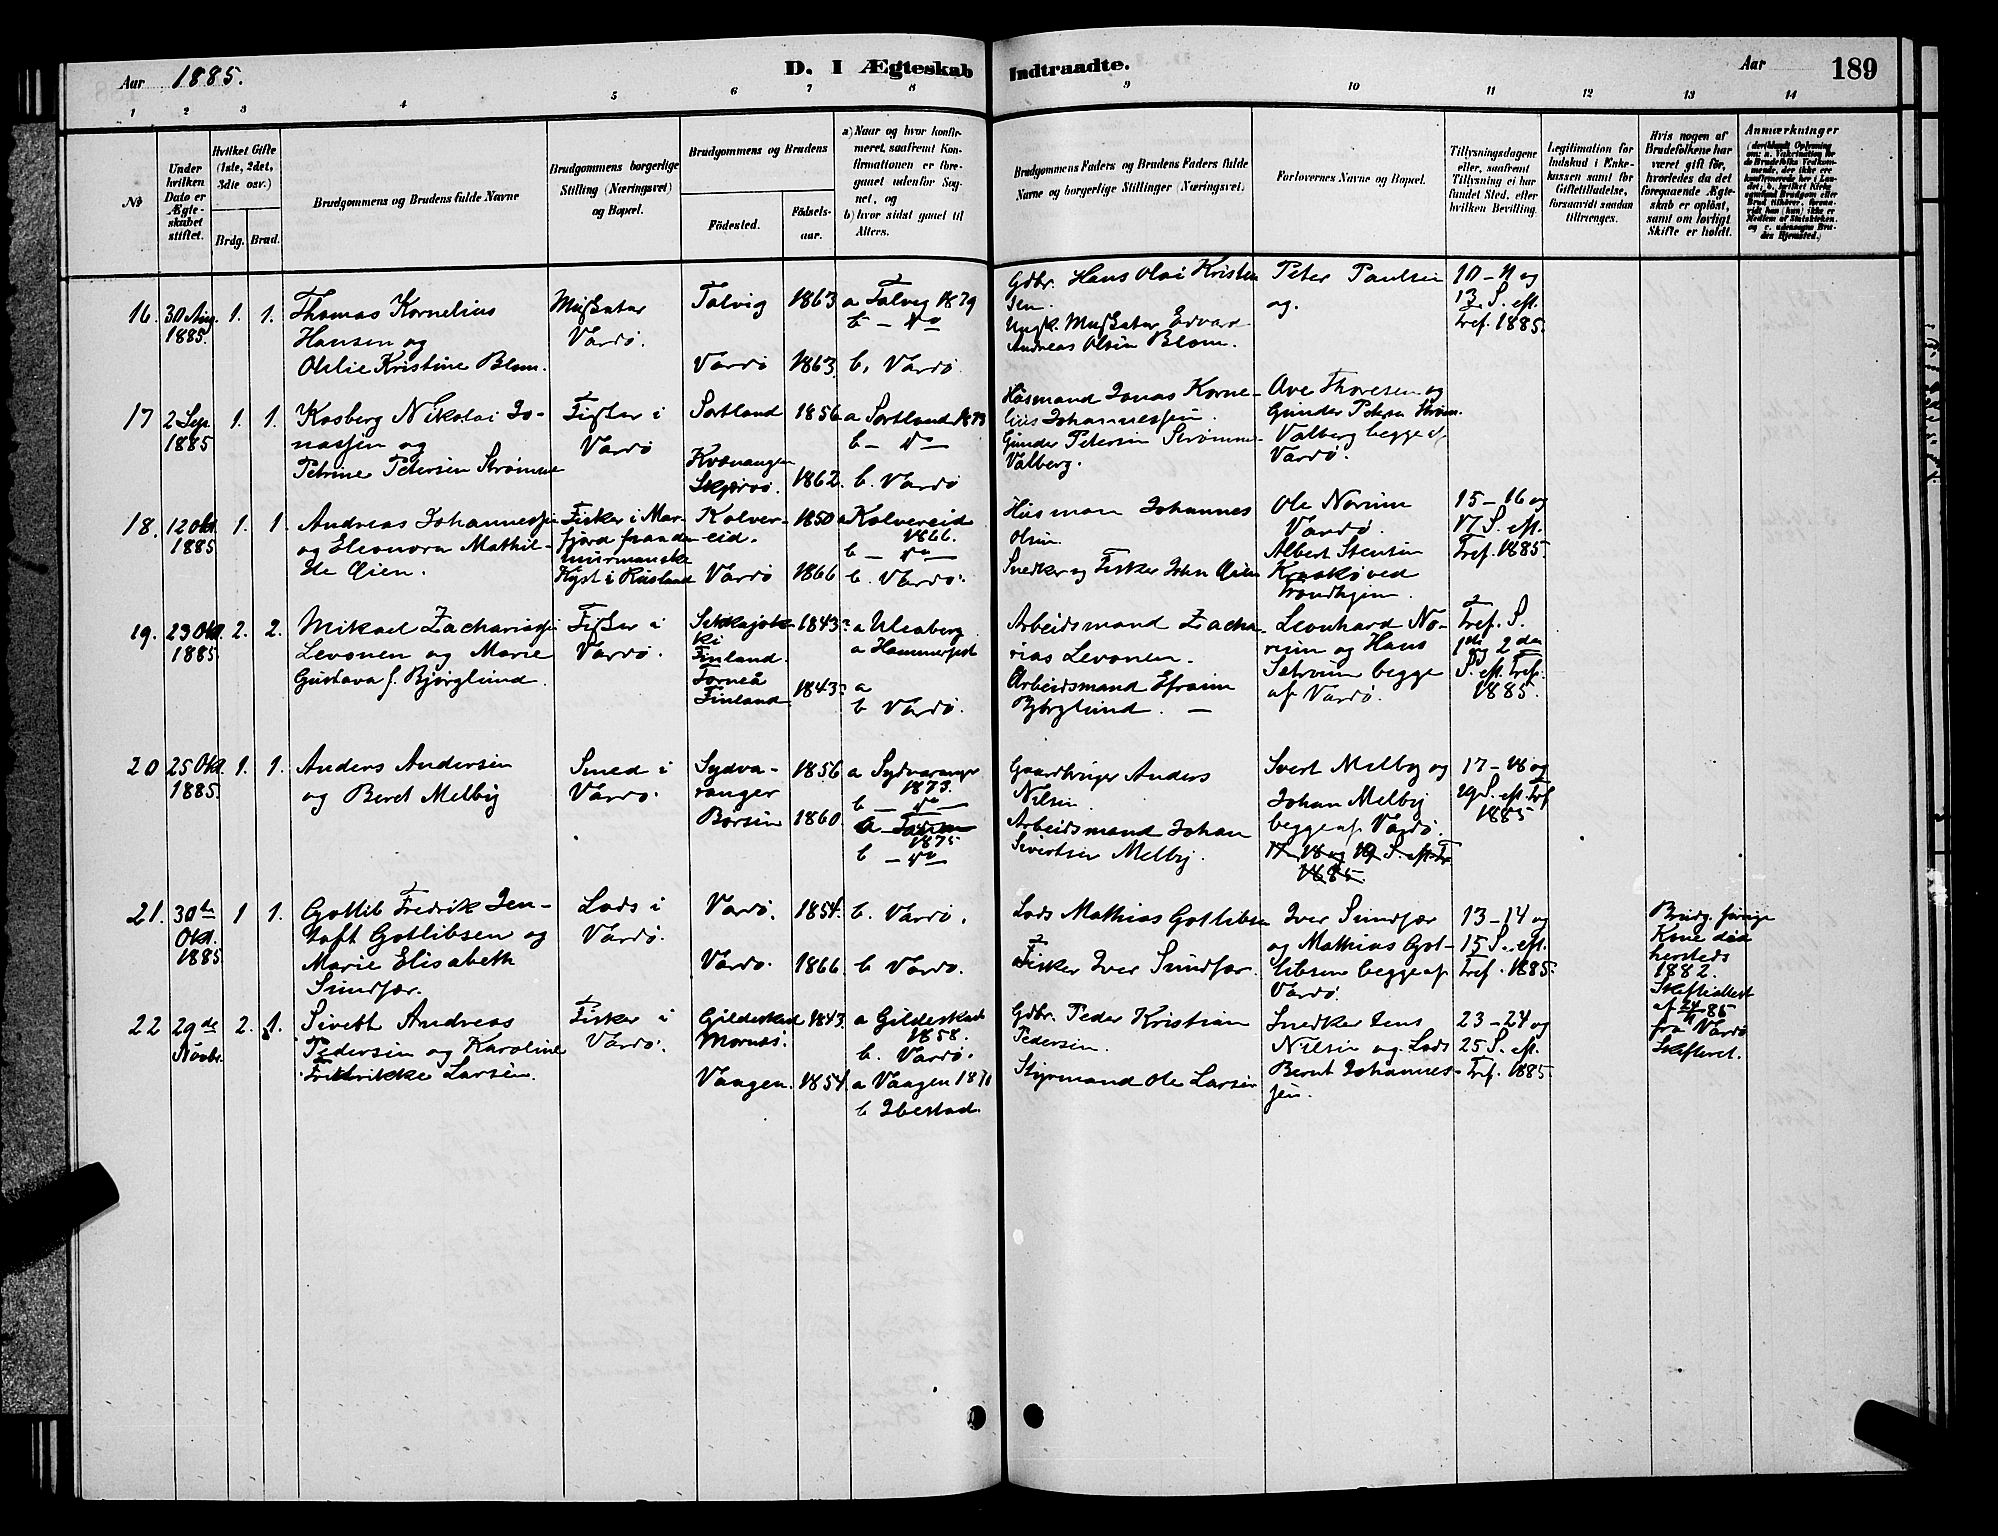 Aar 1885.
D. I Ægteskab
Indtraadte.
Aar
189
1 2 3 4 5 6 7 8 9 10 11 12 13 14
No
Under hvilken Dato er Ægteskabet stiftet.
Hvilket Gifte (1ste, 2det, 3dte osv.)
Brdg. Brud.
Brudgommens og Brudens fulde Navne
Brudgommens borgerlige Stilling (Næringsvei) og Bopæl.
Brudgommens og Brudens
Fødested.
Fødselsaar.
a) Naar og hvor konfirmeret, saafremt Konfirmationen er foregaaet udenfor Sognet, og
b) hvor sidst gaaet til Alters.
Brudgommens Faders og Brudens Faders fulde Navne og borgerlige Stillinger (Næringsvei).
Forlovernes Navne og Bopæl.
Tillysningsdagene eller, saafremt Tillysning ei har fundet Sted, efter hvilken Bevilling.
Legitimation for Indskud i Enkekassen samt for Giftetilladelse, forsaavidt saadan tiltrænges.
Hvis nogen af Brudefolkene har været gift før, hvorledes da det foregaaende Ægteskab er opløst, samt om lovligt Skifte er holdt.
Anmærkninger
16. 30 Aug. 1885. 1. 1.
Thomas Kornelius
Hansen og
Olelie Kristine Blom.
Musketær
Vardø.
Talvig 1863 a Talvig 1879
b – do
Vardø 1863. b. Vardø.
Gdbr. Hans Olai Kristen
sen
Ungk. Musketær Edvard
Andreas Olsen Blom.
Peter Paulsen
og.
10 – 11 og
12 S. eft.
Tref. 1885.
17 2 Sep. 1885 1. 1.
Kasberg Nikolai Jo-
nassen og
Petrine Petersen Strømme
Fisker i
Vardø
Sortland 1856 a Sortland 1873
b – do
Kvænangen
Skjervø. 1862. b. Vardø
Husmand Jonas Korne-
lius Johannessen.
Gunder Petersen Strømme
Valberg.
Ave Thoresen og
Gunder Petersen Strøm.
Valberg begge af
Vardø.
18. 12 Okt. 1885 1. 1.
Andreas Johannessen
og Eleonora Mathil-
de Øien.
Fisker i Mar-
fjord fraanden
murmanske
Kyst i Rusland
Kolver-
eid. 1850 a Kolvereid
1866.
b – do
Vardø 1866 b. Vardø.
Husman Johannes
Olsen.
Snedker og Fisker John Øien
Ole Norum
Vardø.
Albert Stensen
ved
Trondhjem.
15 – 16 og
17 S. eft.
Tref. 1885.
19. 23 Okt. 1885. 2. 2.
Mikael Zachariassen
Levonen og Marie
Gustava f. Bjørglund.
Fisker i
Vardø.
Finland. 1843?
a Uleaborg
a Hammerfest
Torneå
Finland. 1843? a
b Vardø.
Arbeidsmand Zacha-
rias Levonen.
Arbeidsmand Efraim
Bjørglund. –
Leonhard No-
rum og Hans
begge
af Vardø.
Tref. S.
1ste og 2den
S. eft. Tref.
1885.
20 25 Okt. 1885. 1. 1.
Anders Andersen
og Beret Melby
Smed i
Vardø.
Sydva-
ranger 1856 a Sydvaranger
1873.
b – do
Børsen 1860.
1875
b – do
Gaardbruger Anders
Nilsen.
Arbeidsmand Johan
Sivertsen Melby.
Sivert Melby og
Johan Melby
begge af Vardø.
17 18 og 19 S. eft. Tr.
1885.
17 – 18 og
19 S. eft. Tref
1885
21. 30te Okt. 1885 1 1.
Gottlib Fredrik Jen-
toft Gotlibsen og
Marie Elisabeth
Sundfær.
Lods i
Vardø.
Vardø. 1854. b. Vardø.
Vardø. 1866. b Vardø.
Lods Mathias Gotlibsen
Fisker Iver Sundfær.
Iver Sundfær
og Mathias Got-
libsen begge af
Vardø.
13 – 14 og
15 S. eft.
Tref. 1885.
Brudg. forrige
Kone død
hersteds
1882.
Skifteattest
af 24/11 85
fra Vardø
Skifteret.
22 29de Novbr. 2. 1.
Sivert Andreas
Pedersen og Karoline
Fredrikke Larsen.
Fisker i
Vardø.
Gildeskaal 1843. a Gildeskaal
Mornæs. 1858.
b. Vardø.
Vaagen. 1854. a Vaagen 1871
b Ibestad.
Gdbr. Peder Kristian
Pedersen.
Styrmand Ole Larsen
Snedker Jens
Nilsen og Lods
Bernt Johannes-
sen.
23 – 24 og
25 S. eft.
Tref. 1885.